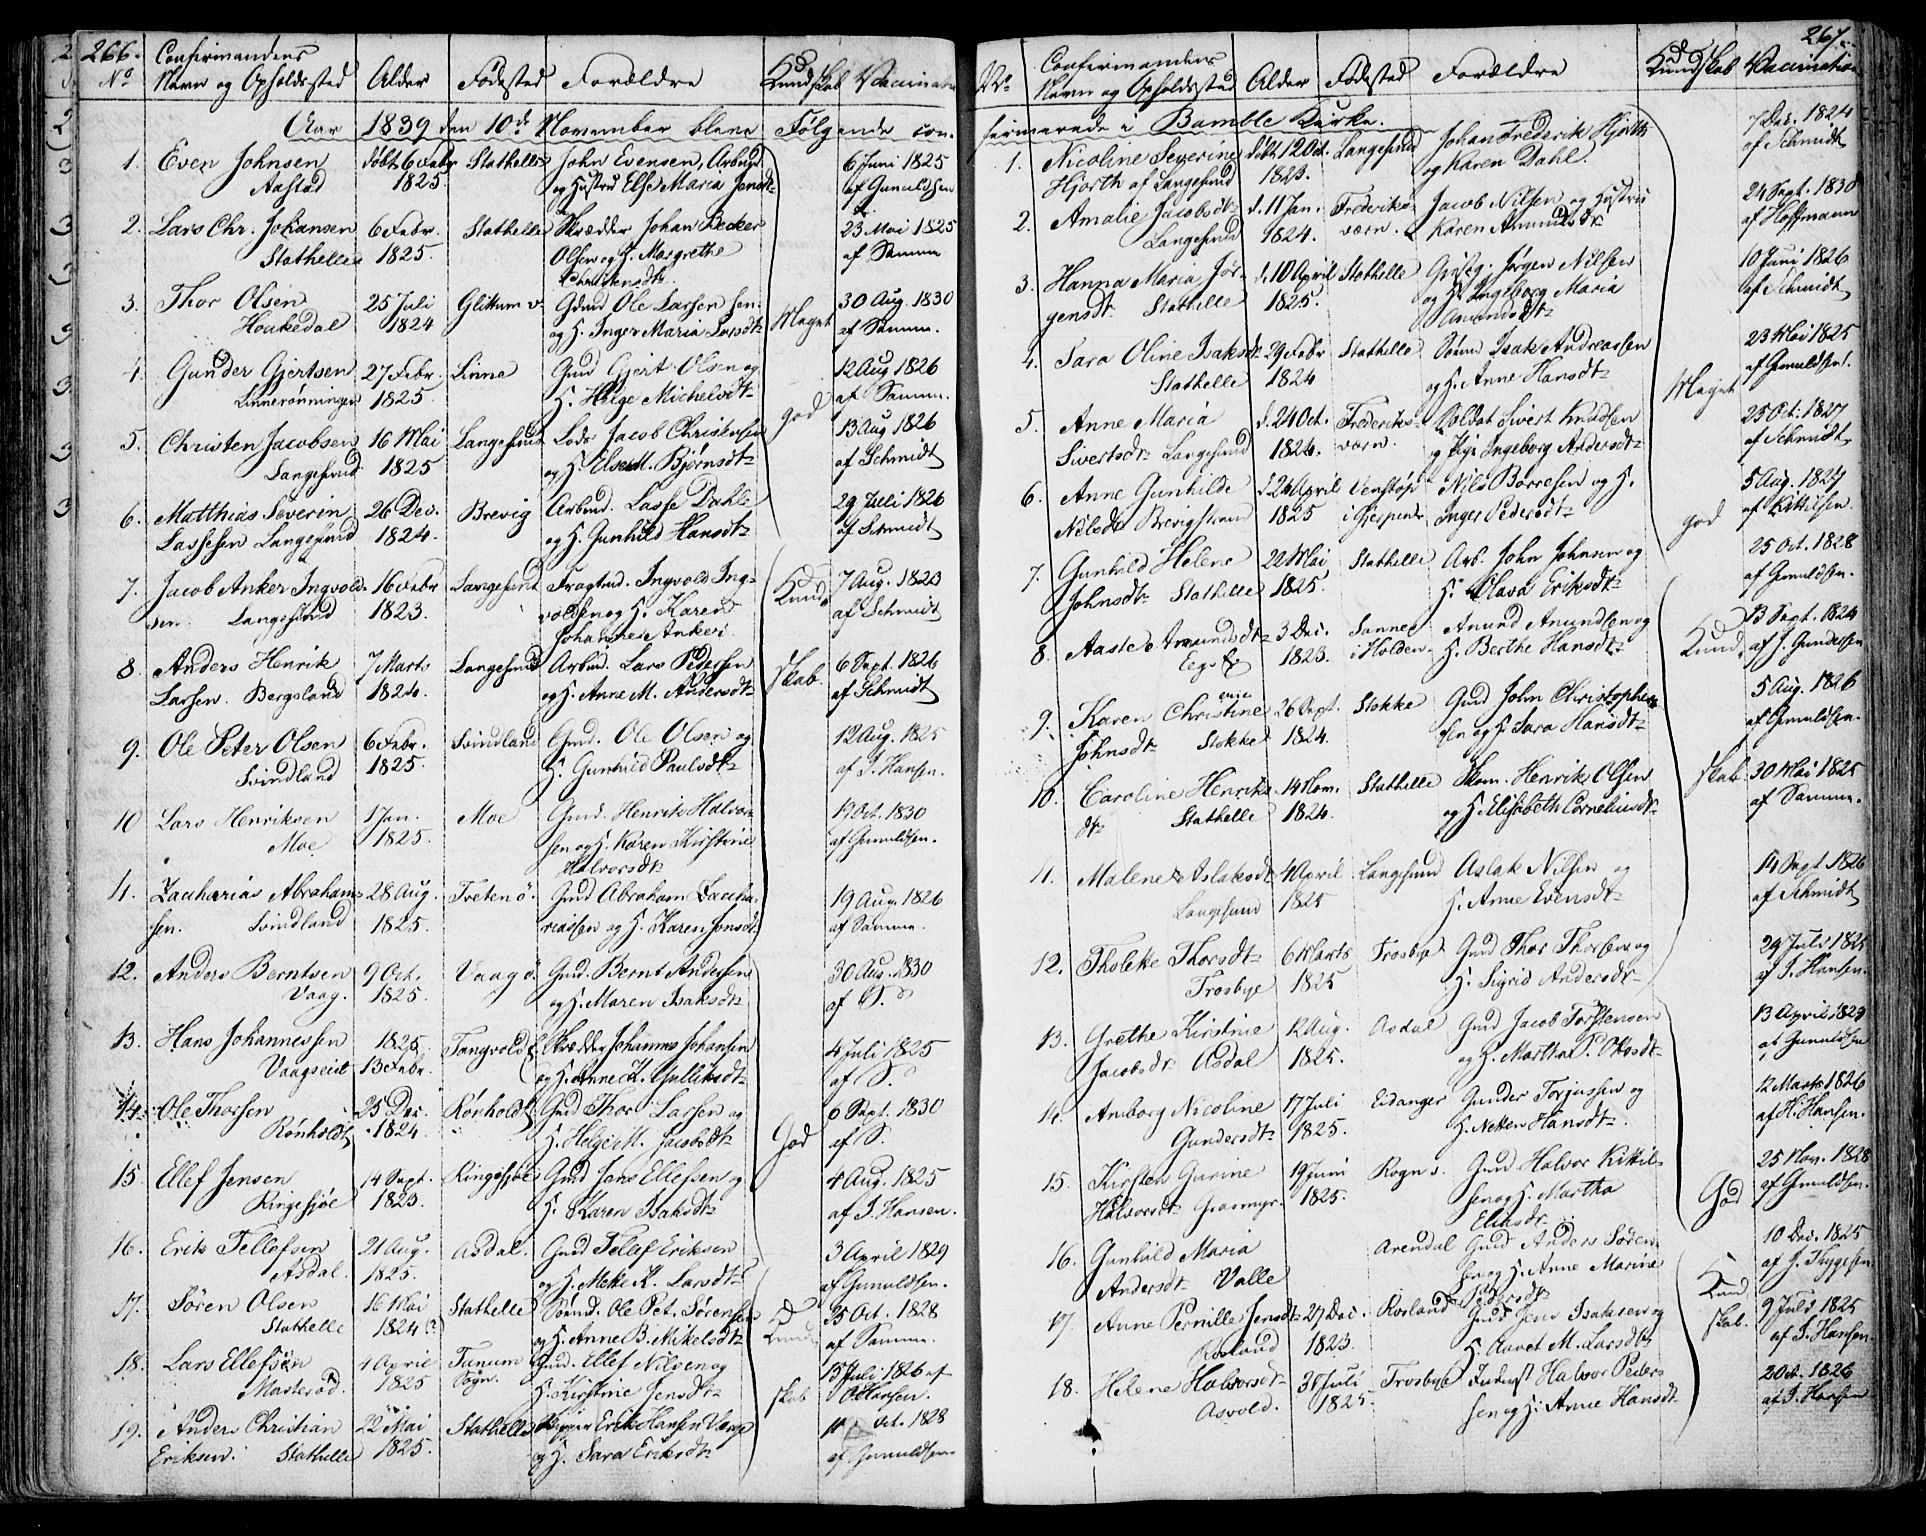 266.
Confirmandens
No Navn og Opholdssted Alder Fødested Forældre Kundskab Vaccination
Aar 1839 den 10de November bleve Følgende con-
1. Even Johnsen født 6 Febr Stathelle John Evensen, Arbmd 6 Juni 1825
Aastad 1825. og Hustru Else Maria Jensdt af Gunuldsen
2. Lars Chr. Johansen 6 Febr. Stathelle Skrædder Johan Becker 23 Mai 1825
Stathelle 1825. Olsen og H. Margrethe af Samme
Christensdt
3. Thor Olsen 25 Juli Glittum Gdmd Ole Larsen sen. 30 Aug. 1830
Houkedal 1824 og H. Inger Maria Larsdt Meget af Samme.
4. Gunder Gjertsen 27 Febr. Linne Gmd Gjert Olsen og 12 Aug 1826
Linnerønningen 1825. H. Helge Michelsdt god af Samme.
5. Christen Jacobsen 16 Mai Langesund Lods Jacob Christensen 13 Aug 1826
Langesund 1825 og H. Else M. Bjørnsdt af Schmidt
6. Matthias Severin 26 Dec. Brevig Arbmd. Lasse Dahle 29 Juli 1826
Lassesen Langesund 1824. og H. Gunhild Hansdt af Schmidt
7. Jacob Anker Ingvold- 16 Febr Langesund Fragtmd. Ingvold Ing- Kund- 7 Aug. 1823
sen. Langesund 1823. voldsen og H. Karen af Schmidt
Johannes Anker
8 Anders Henrik 7 Marts Langesund Arbmd. Lars Pedersen skab 6 Sept. 1826
Larsen. Bergsland 1824. og H. Anne M. Andersdt af Schmidt
9. Ole Peter Olsen 6 Febr. Svindland Gmd. Ole Olsen og 12 Aug. 1825
Svindland 1825. H. Gunhild Paulsdt af J. Hansen.
10 Lars Henriksen 1 Jan. Moe Gmd. Henrik Halvor- 19 Oct. 1830
Moe 1825. sen og H. Karen Kirstine af Gunuldsen.
Halvorsdt
11. Zacharias Abraham- 28 Aug. Tretenø. Gmd Abraham Zacha- 19 Aug. 1826
sen. Svindland 1825. riassen og H. Karen Jensdt af Samme.
12. Anders Berntsen 9 Oct. Vaagø. Gmd. Bernt Andersen 30 Aug. 1830
Vaag. 1825. og H. Maren Isaksdt af S.
13. Hans Johannessen 1825. Tangvold Skrædder Johannes Johansen 4 Juli 1825
Vaagseid 13 Febr. og H. Anne K. Gulliksdt af S.
14. Ole Thorsen 25 Dec. Rønholdt Gmd Thor Larsen og 6 Sept. 1830
Rønholdt 1824. H. Helge M. Jacobsdt God af S.
15 Ellef Jensen 14 Sept. Ringsjøe Gmd Jens Ellefsen og 4 Aug. 1825
Ringesjøe 1823. H. Karen Isaksdt af J. Hansen.
16. Erik Tellefsen 21 Aug. Asdal. Gmd Telef Eriksen 3 April 1829
Asdal. 1825. og H. Meke K. Larsdt af Gunuldsen.
17. Søren Olsen 16 Mai Stathelle Sømd. Ole Pet. Sørensen Kund- 25 Oct. 1828
Stathelle 1824 og H. Anne B. Mikelsdt af Samme.
18. Lars Ellefsen 4 April Tanum Gmd. Ellef Nilsen og 15 Juli 1826 af
Masterød. 1825 Sogn. H. Kirstine Jensdt skab Hansen.
19. Anders Christian 22 Mai Stathelle Skipper Erik Hansen Oct. 1828
Eriksen. Stathelle 1825. og H. Sara Eriksdt af Gunuldsen.
267.
Confirmandens
No Navn og Opholdssted Alder Fødested Forældre Kundskab Vaccination
firmerede i Bamble Kirke.
1. Nicoline Severine født 12 Oct. Langesund Johan Frederik Hjorth 7 Dec. 1824
Hjorth af Langesund 1823. og Karen Dahl. af Schmidt
2. Amalie Jacobsdt d. 11 Jan. Frederiks- Jacob Nilsen og Hustru 24 Sept. 1830
Langesund 1824. værn. Karen Amundsdt af Hoffmann
3. Hanna Maria Jør- d. 10 April Stathelle Jørgen Nilsen 10 Juni 1826
gensdt. Stathelle 1825. og H. Ingeborg Maria af Schmidt
Amundsdt
4. Sara Oline Isaksdt 29 Febr Stathelle Sømd Isak Andreassen 23 Mai 1825
Stathelle 1824 og H. Anne Hansdt Meget af Gunuldsen.
5. Anne Maria d. 24 Oct. Frederiks- Soldat Sivert Knudsen 25 Oct. 1827
Sivertsdt Langesund 1824. værn. og Pige Ingeborg Andersdt af Schmidt
6. Anne Gunhilde d. 26 April Venstøp Nils Børresen og H. 5 Aug. 1827
Nilsdt Brevigstrand 1825 i Gjerpen Inger Pedersdt god af Kittilsen.
7. Gunhild Helene 22 Mai Stathelle Arb. John Johnsen og 25 Oct. 1828
Johnsdt Stathelle 1825. H. Olava Eriksdt af Gunuldsen.
8. Aaste Amundsdt 3 Dec. Sannes Amund Amundsen og Kund- 13 Sept. 1824
Eeg 1823. i Holden H. Berthe Hansdt af J. Gundersen
9. Karen Christine 26 Sept. Stokke Gmd John Christophers- 5 Aug. 1826
Johnsdt Stokke 1824. sen og H Sara Hansdt af Gunuldsen.
10. Caroline Henriks- 14 Nom. Stathelle Skom. Henrik Olsen skab 30 Mai 1825
dt Stathelle 1824. og H. Elisabeth Corneliusdt af Samme.
11. Malene Aslaksdt 4 April Langesund Aslak Nilsen og 14 Sept 1826
Langesund 1825 H. Anne Evensdt af Schmidt
12. Tholeke Thorsdt 6 Marts Trosbye Gmd Thor Thorsen og 29 Juli 1825
Trosbye 1825 H. Sigrid Andersdt af J. Hansen.
13. Grethe Kirstine 12 Aug. Asdal Gmd Jacob Torstensen 13 April 1829
Jacobsdt Asdal 1825. og H. Martha P. Olsdt af Gunuldsen
14. Anborg Nicoline 17 Juli Eidanger Gunder Torjussen og 12 Marts 1826
Gundersdt 1825. H. Netten Hansdt af H. Hansen.
15. Kirsten Gurine 19 Juni Rogn Gmd Halvor Kittil- 25 Nov. 1828
Halvorsdt Grasmyr. 1825. sen og H. Martha God af Gunuldsen.
Eliksdt
16. Gunhild Maria Arendal Gmd Anders Søren- 10 Dec. 1825
Andersdt Valle sen og H. Anne Marine Kund- af J. Tryggesen.
Pedersdt
17. Anne Pernille Jensdt 27 Dec. Rosland Gmd Jens Isaksen og skab. 9 Juli 1825
Rosland 1823. H. Aavet M. Larsdt af J. Hansen.
18. Helene Halvorsdt 31 Juli Trosbye Inderst Halvor Peder- Oct. 1826
Asvold. 1825. sen og H. Anne Hansdt af J. Hansen